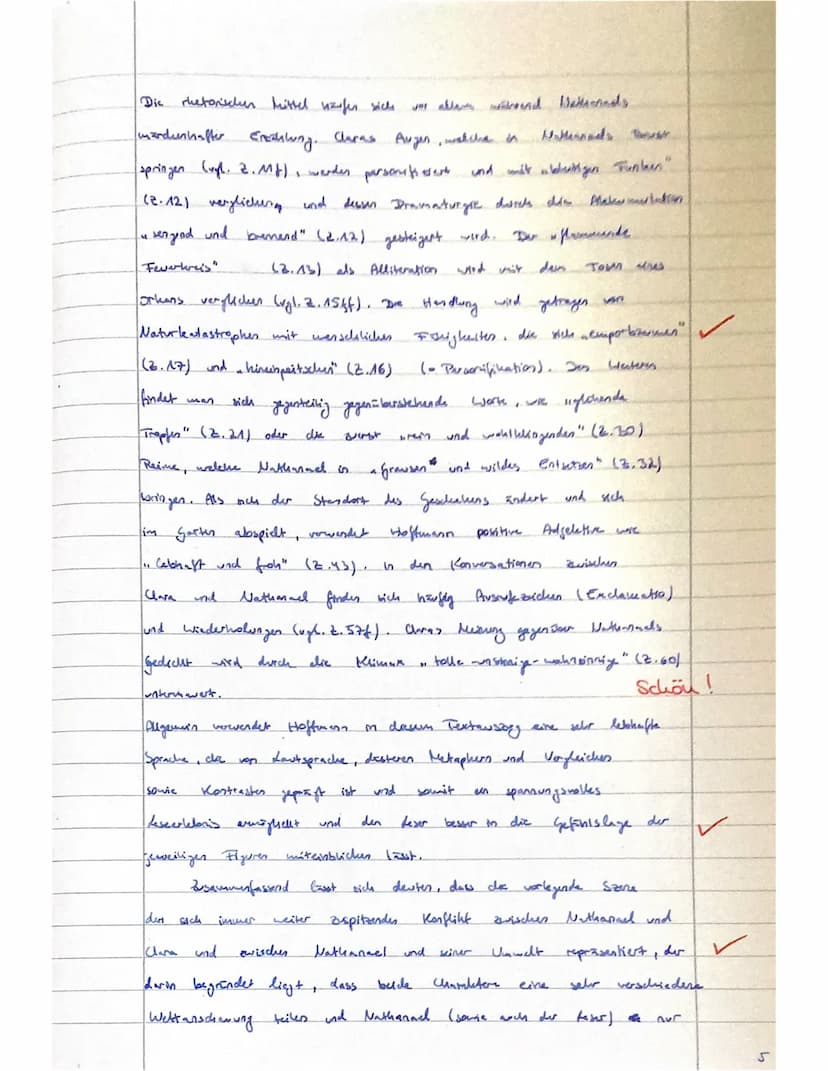 Die rhetorischen Mittel häufen sich vor allem während Nathanaels
märchenhafter Erzählung. Claras Augen, welche in Nathanaels Brust
springen (vgl. Z. 11f), werden personifiziert und mit „blutigen Funken"
(Z.12) verglichen und dessen Dramaturgie durch die
„sengend und brennend" (Z.12) gesteigert wird. Der „flammende
Feuerkreis" (Z.13) als Alliteration wird mit dem Tosen eines
Orkans verglichen (vgl. Z.15ff). Die Handlung wird getragen von
Naturkatastrophen mit menschlichen Fähigkeiten, die sich „emporbäumen"
(Z.17) und „hineinpeitschen" (Z.16) (= Personifikation). Des Weiteren
findet man sich gegenteilig gegenüberstehende Worte, wie „glühende
Tropfen" (Z.21) oder die zuerst „rein und wohlklingenden" (Z.30)
Reime, welche Nathanael in „Grausen" und wildes Entsetzen" (Z.32)
bringen. Als sich der Standort des Geschehens ändert und sich
im Garten abspielt, verwendet Hoffmann positive Adjektive wie
„lebhaft und froh" (Z.43). In den Konversationen zwischen
Clara und Nathanael finden sich häufig Ausrufezeichen (Exclamatio)
und Wiederholungen (vgl. Z.57f). Claras Meinung gegenüber Nathanaels
Gedicht wird durch die Klimax „tolle-unsinnige-wahnsinnige" (Z.60)
untermauert.
Schön!
Allgemein verwendet Hoffmann in diesem Textauszug eine sehr lebhafte
Sprache, die von Lautsprache, düsteren Metaphern und Vergleichen
sowie Kontrasten geprägt ist und somit ein spannungsvolles
Leseerlebnis ermöglicht und den Leser besser in die Gefühlslage der
jeweiligen Figuren miteinblicken lässt.
Zusammenfassend lässt sich deuten, dass die vorliegende Szene
den sich immer weiter zuspitzenden Konflikt zwischen Nathanael und
Clara und zwischen Nathanael und seiner Umwelt repräsentiert, der
darin begründet liegt, dass beide Charaktere eine sehr verschiedene
Weltanschauung teilen und Nathanael (sowie auch der Leser) nur
5